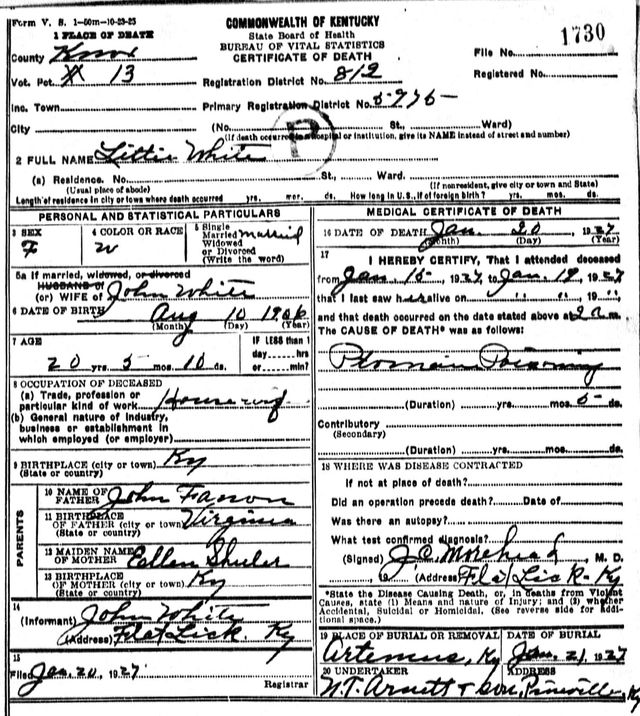 Form V. S. 1—50m—10-23-25
COMMONWEALTH OF KENTUCKY
State Board of Health
BUREAU OF VITAL STATISTICS
CERTIFICATE OF DEATH
1 PLACE OF DEATH
County Knox
File No. 1730
Vot. Pct. X 13
Registration District No. 812
Registered No.
Inc. Town
Primary Registration District No. 5975-
City (No. St., Ward)
P
(If death occurred in a hospital or institution, give its NAME instead of street and number)
2 FULL NAME Littie White
(a) Residence. No. St., Ward.
(Usual place of abode) (If nonresident, give city or town and State)
Length of residence in city or town where death occurred yrs. mos. ds. How long in U. S., if of foreign birth? yrs. mos. ds.
PERSONAL AND STATISTICAL PARTICULARS
3 SEX F
4 COLOR OR RACE W
5 Single Married Widowed or Divorced (Write the word) Married
5a If married, widowed, or divorced
HUSBAND of
(or) WIFE of John White
6 DATE OF BIRTH Aug 10 1906
(Month) (Day) (Year)
7 AGE IF LESS than 1
20 yrs. 5 mos. 10 ds. day, hrs. or min?
8 OCCUPATION OF DECEASED
(a) Trade, profession or
particular kind of work Housewife
(b) General nature of industry,
business or establishment in
which employed (or employer)
9 BIRTHPLACE (city or town) Ky
(State or country)
PARENTS
10 NAME OF FATHER John Fanon
11 BIRTHPLACE
OF FATHER (city or town) Virginia
(State or country)
12 MAIDEN NAME
OF MOTHER Ellen Shuler
13 BIRTHPLACE
OF MOTHER (city or town) Ky
(State or country)
14
(Informant) John White
(Address) Flat Lick Ky
15
Filed Jan. 20, 1927
Registrar
MEDICAL CERTIFICATE OF DEATH
16 DATE OF DEATH Jan. 20 1927
(Month) (Day) (Year)
17
I HEREBY CERTIFY, That I attended deceased
from Jan. 15, 1927, to Jan. 19, 1927
that I last saw h alive on " " , 19 "
and that death occurred on the date stated above at 2 a m.
The CAUSE OF DEATH* was as follows:
Ptomaine Poisoning
(Duration) yrs. mos. 5 ds.
Contributory
(Secondary)
(Duration) yrs. mos. ds.
18 WHERE WAS DISEASE CONTRACTED
if not at place of death?
Did an operation precede death? Date of
Was there an autopsy?
What test confirmed diagnosis?
(Signed) J. C. Morehead M. D.
, 19 (Address) Flat Lick - Ky
*State the Disease Causing Death, or, in deaths from Violent
Causes, state (1) Means and nature of Injury; and (2) whether
Accidental, Suicidal or Homicidal. (See reverse side for addi-
tional space.)
19 PLACE OF BURIAL OR REMOVAL DATE OF BURIAL
Artemus, Ky Jan. 21, 1927
20 UNDERTAKER ADDRESS
N. T. Arnett & Son, Pineville, Ky